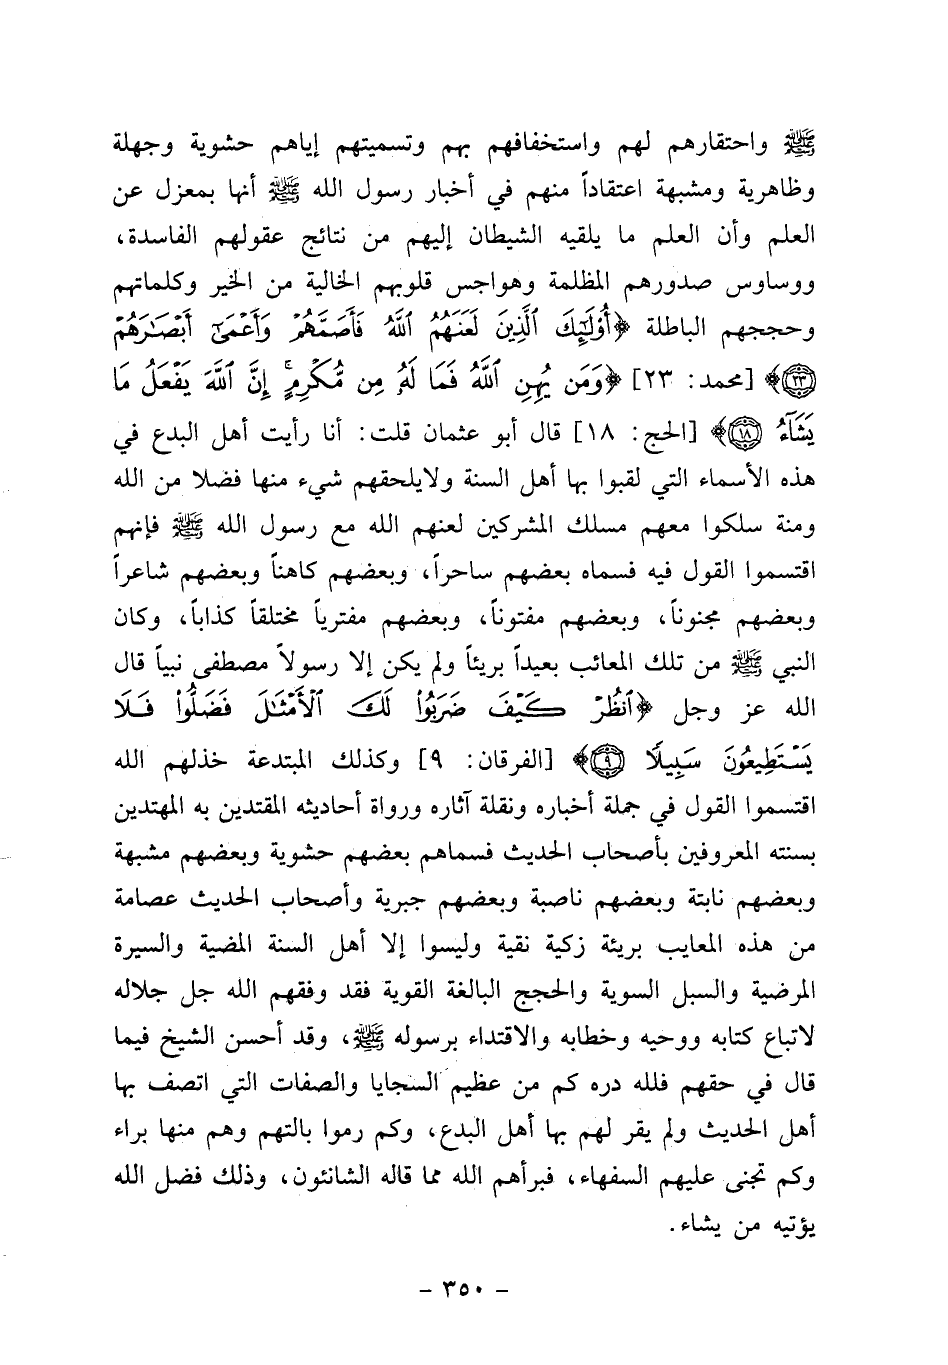 ﷺ واحتقارهم لهم واستخفافهم بهم وتسميتهم إياهم حشوية وجهلة
وظاهرية ومشبهة اعتقاداً منهم في أخبار رسول الله ﷺ أنها بمعزل عن
العلم وأن العلم ما يلقيه الشيطان إليهم من نتائج عقولهم الفاسدة،
ووساوس صدورهم المظلمة وهواجس قلوبهم الخالية من الخير وكلماتهم
وحججهم الباطلة ﴿أُوْلَٰٓئِكَ ٱلَّذِينَ لَعَنَهُمُ ٱللَّهُ فَأَصَمَّهُمْ وَأَعْمَىٰٓ أَبْصَٰرَهُمْ
٢٣﴾ [محمد: ٢٣] ﴿وَمَن يُهِنِ ٱللَّهُ فَمَا لَهُۥ مِن مُّكْرِمٍ ۚ إِنَّ ٱللَّهَ يَفْعَلُ مَا
يَشَآءُ ١٨﴾ [الحج: ١٨] قال أبو عثمان قلت: أنا رأيت أهل البدع في
هذه الأسماء التي لقبوا بها أهل السنة ولايلحقهم شيء منها فضلا من الله
ومنة سلكوا معهم مسلك المشركين لعنهم الله مع رسول الله ﷺ فإنهم
اقتسموا القول فيه فسماه بعضهم ساحراً، وبعضهم كاهناً وبعضهم شاعراً
وبعضهم مجنوناً، وبعضهم مفتوناً، وبعضهم مفترياً مختلقاً كذاباً، وكان
النبي ﷺ من تلك المعائب بعيداً بريئاً ولم يكن إلا رسولاً مصطفى نبياً قال
الله عز وجل ﴿ٱنظُرْ كَيْفَ ضَرَبُواْ لَكَ ٱلْأَمْثَٰلَ فَضَلُّواْ فَلَا
يَسْتَطِيعُونَ سَبِيلًا ٩﴾ [الفرقان: ٩] وكذلك المبتدعة خذلهم الله
اقتسموا القول في جملة أخباره ونقلة آثاره ورواة أحاديثه المقتدين به المهتدين
بسنته المعروفين بأصحاب الحديث فسماهم بعضهم حشوية وبعضهم مشبهة
وبعضهم نابتة وبعضهم ناصبة وبعضهم جبرية وأصحاب الحديث عصامة
من هذه المعايب بريئة زكية نقية وليسوا إلا أهل السنة المضية والسيرة
المرضية والسبل السوية والحجج البالغة القوية فقد وفقهم الله جل جلاله
لاتباع كتابه ووحيه وخطابه والاقتداء برسوله ﷺ، وقد أحسن الشيخ فيما
قال في حقهم فلله دره كم من عظيم السجايا والصفات التي اتصف بها
أهل الحديث ولم يقر لهم بها أهل البدع، وكم رموا بالتهم وهم منها براء
وكم تجنى عليهم السفهاء، فبرأهم الله مما قاله الشانئون، وذلك فضل الله
يؤتيه من يشاء.
- ٣٥٠ -